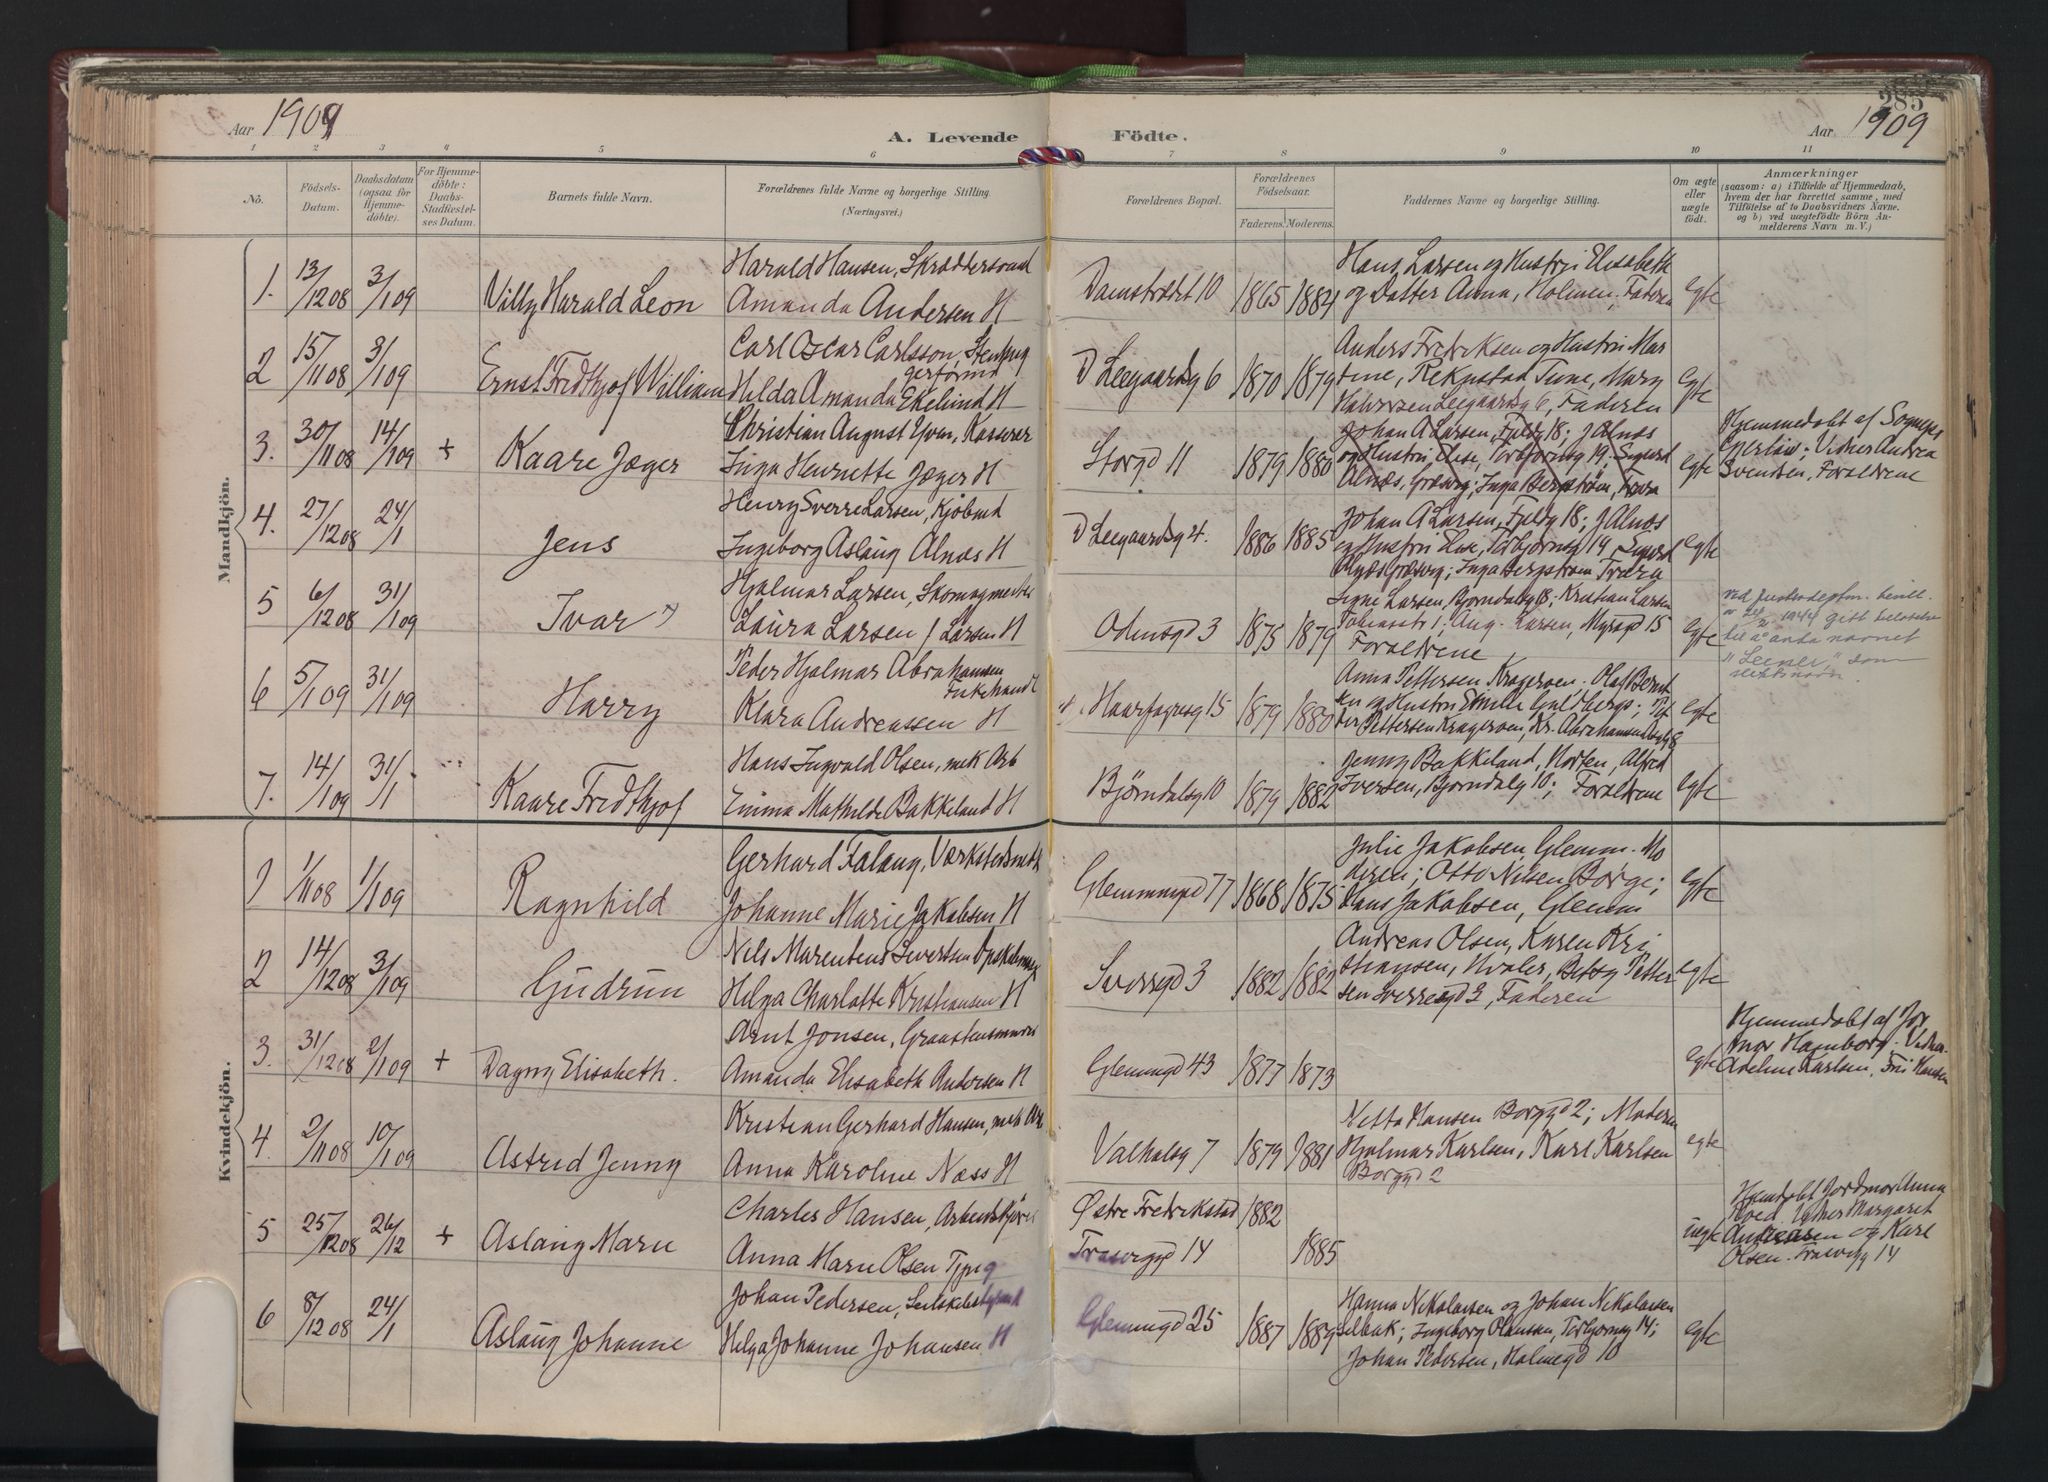 Aar 1909
A. Levende Födte.
285
Aar 1909
1 2 3 4 5 6 7 8 9 10 11
No.
Födsels-Datum.
Daabsdatum (ogsaa for Hjemme-döbte).
For Hjemme-döbte: Daabs-Stadfæstel-ses Datum.
Barnets fulde Navn.
Forældrenes fulde Navne og borgerlige Stilling.
(Næringsvei.)
Forældrenes Bopæl.
Forældrenes Födselsaar.
Faderens. Moderens.
Faddernes Navne og borgerlige Stilling.
Om ægte eller uægte födt.
Anmærkninger
(saasom: a) i Tilfælde af Hjemmedaab,
hvem der har forrettet samme, med
Tilföielse af to Daabsvidners Navne.
og b) ved uægtefödte Börn An-
melderens Navn m. V.)
Mandkjön.
1. 13/12 08 3/1 09 Villy Harald Leon
Harald Hansen, Skræddersvend
Amanda Andersen H
Damstrædet 10 1865 1884
Hans Larsen og Hustru Elisabeth
og Datter Anna, Holmen; Faderen
egte
2 15/11 08 3/1 09 Ernst Fredthjof William
Carl Oscar Carlsson, Stenhug
gerformd
Hilda Amanda Ekelund H
D Leegaardsg 6 1870 1879
Anders Fredriksen og Hustru Mar
tine, Rekustad Tune, Mary
Leegaardsg 6, Faderen
egte
3. 30/11 08 14/1 09 + Kaare Jæger
Christian August Yven, Kasserer
Inga Henriette Jæger H
Storgd 11 1879 1880
Johan A Larsen, Fjeldg 18; J Alnæs
og Hustru Elise, Torbjørnsg 19; Sigurd
Alnæs, Græsvig; Inga Bergstrøm, Trara
egte
Hjemmedøbt af Sognepr
Gjerløw; Vidner Andrea
Svendsen, Forældrene
4. 27/12 08 24/1 Jens
Henry Sverre Larsen, Kjøbmd
Ingeborg Aslaug Alnæs H
D Leegaardsg 4. 1886 1885
Johan A Larsen, Fjeldg 18; J Alnæs
og Hustru Elise, Torbjørnsg 19, Sigurd
Alnæs Græsvig; Inga Bergstrøm Trara
egte
5 6/12 08 31/1 09 Ivar
Hjalmar Larsen, Skomagmester
Laura Larsen f Larsen H
Odinsgd 3 1875 1879
Signe Larsen, Bjørndalsg 18; Kristian Larsen
Tomasstr 1; Aug. Larsen, Myragd 15
Forældrene
egte
ved justisdeptm. bevill.
1944 gitt tillatelse
til å anta navnet
som
slektsnavn.
6 5/1 09 31/1 09 Harry
Peder Hjalmar Abrahamsen
Fiskehandl
Klara Andreassen H
Haarfagresg 15 1879 1880
Anna Pettersen Kragerøen. Olaf Bernt
sen og Hustru Emilie Guldbergs; Pet
der Pettersen Kragerøen, Kr. Abrahamsen
egte
7. 14/1 09 31/1 Kaare Fredthjof
Hans Ingvald Olsen, mek Arb
Emma Mathilde Bakkeland H
Bjørndalsg 10 1879 1882
Jenny Bakkeland, Horten, Alfred
Iversen, Bjørndalsg 10; Forældrene
egte
Kvindekjön.
1 1/11 08 1/1 09 Ragnhild
Gerhard Falang, Værkstedsmd
Johanne Marie Jakobsen H
Glemmengd 77 1868 1875
Julie Jakobsen, Glemm. Mo
deren; Otto Nilsen Borge;
Hans Jakobsen, Glemm
egte
2 14/12 08 3/1 09 Gudrun
Nils Marentius Sivertsen
Helga Charlotte Kristiansen H
Sverregd 3 1882 1882
Andreas Olsen, Karen Kri
stiansen, Hvaler, Betsy Petter
sen Sverregd 3, Faderen
egte
3. 31/12 08 2/1 09 + Dagny Elisabeth.
Arnt Jonsen, Graastensminør
Amanda Elisabeth Andersen H
Glemmgd 43 1877 1873
egte
Hjemmedøbt af Jor
mor Hamborg. Vidner.
Adeline Karlsen, Fru Hansen
4. 2/11 08 10/1 09 Astrid Jenny
Kristian Gerhard Hansen, mek Arb
Anna Karoline Næss H
Valhalsg 7 1879 1881
Netta Hansen Borggd 2; Moderen
Hjalmar Karlsen, Karl Karlsen
Borggd 2
egte
5 25/12 08 26/12 + Aslaug Marie
Charles Hansen, Arbeidskjører
Anna Marie Olsen Tjpig
Østre Fredrikstad 1882
Trosvigd 14 1885
uegte
Hjemdøbt Jordmor Anna
Hoed. Vidner Margaret
Andreasen og Karl
Olsen. Trosvigg 14
6 8/12 08 24/1 Aslaug Johanne
Johan Pedersen,
Helga Johanne Johansen H
Glemmgd 25 1887 1889
Hanna Nikolaisen og Johan Nikolaisen
Selbak; Ingeborg Olaussen, Torbjørnsg 14;
Johan Pedersen, Holmegd 10
egte